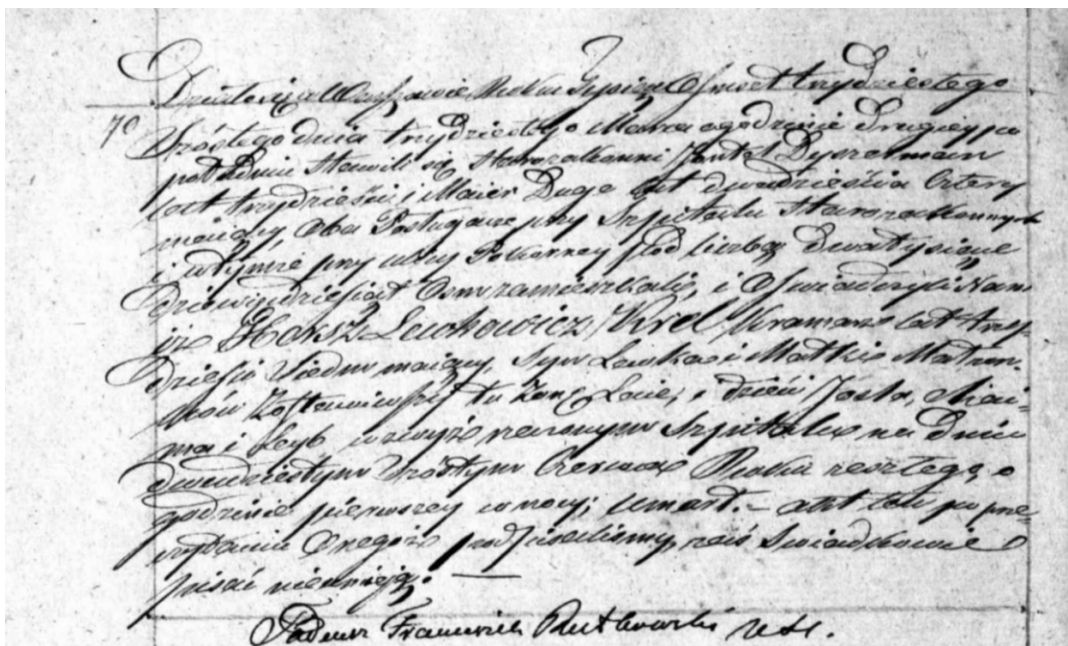 Działo się w Warszawie Roku Tysiąc Ośmset trzydziestego
70
Szóstego dnia trzydziestego Marca o godzinie drugiey po
południu Stawili się Starozakonni Jankel Dyszelman
lat trzydzieści i Maier Duge lat dwadzieścia cztery
maiący, oba Posługacze przy Szpitalu Starozakonnych
i w tymże przy ulicy Pokorney pod liczbą dwatysiące
Dziewięćdziesiąt Osm zamieszkali, i Oświadczyli Nam
iż Herszk Lewkowicz Kramarz lat trzy-
dzieści Siedm maiący, Syn Lewka i Matki Małżon-
ków zostawiwszy tu Żonę i dzieci
ma i Leyb w wyż rzeczonym Szpitalu na dniu
dwudziestym Szóstym Czerwca Roku zeszłego, o
godzinie pierwszey w nocy, umarł. - Akt ten po prze-
czytaniu Onegoż podpisaliśmy, zaś Świadkowie
pisać nieumieją.
Tadeusz Franciszek Rutkowski